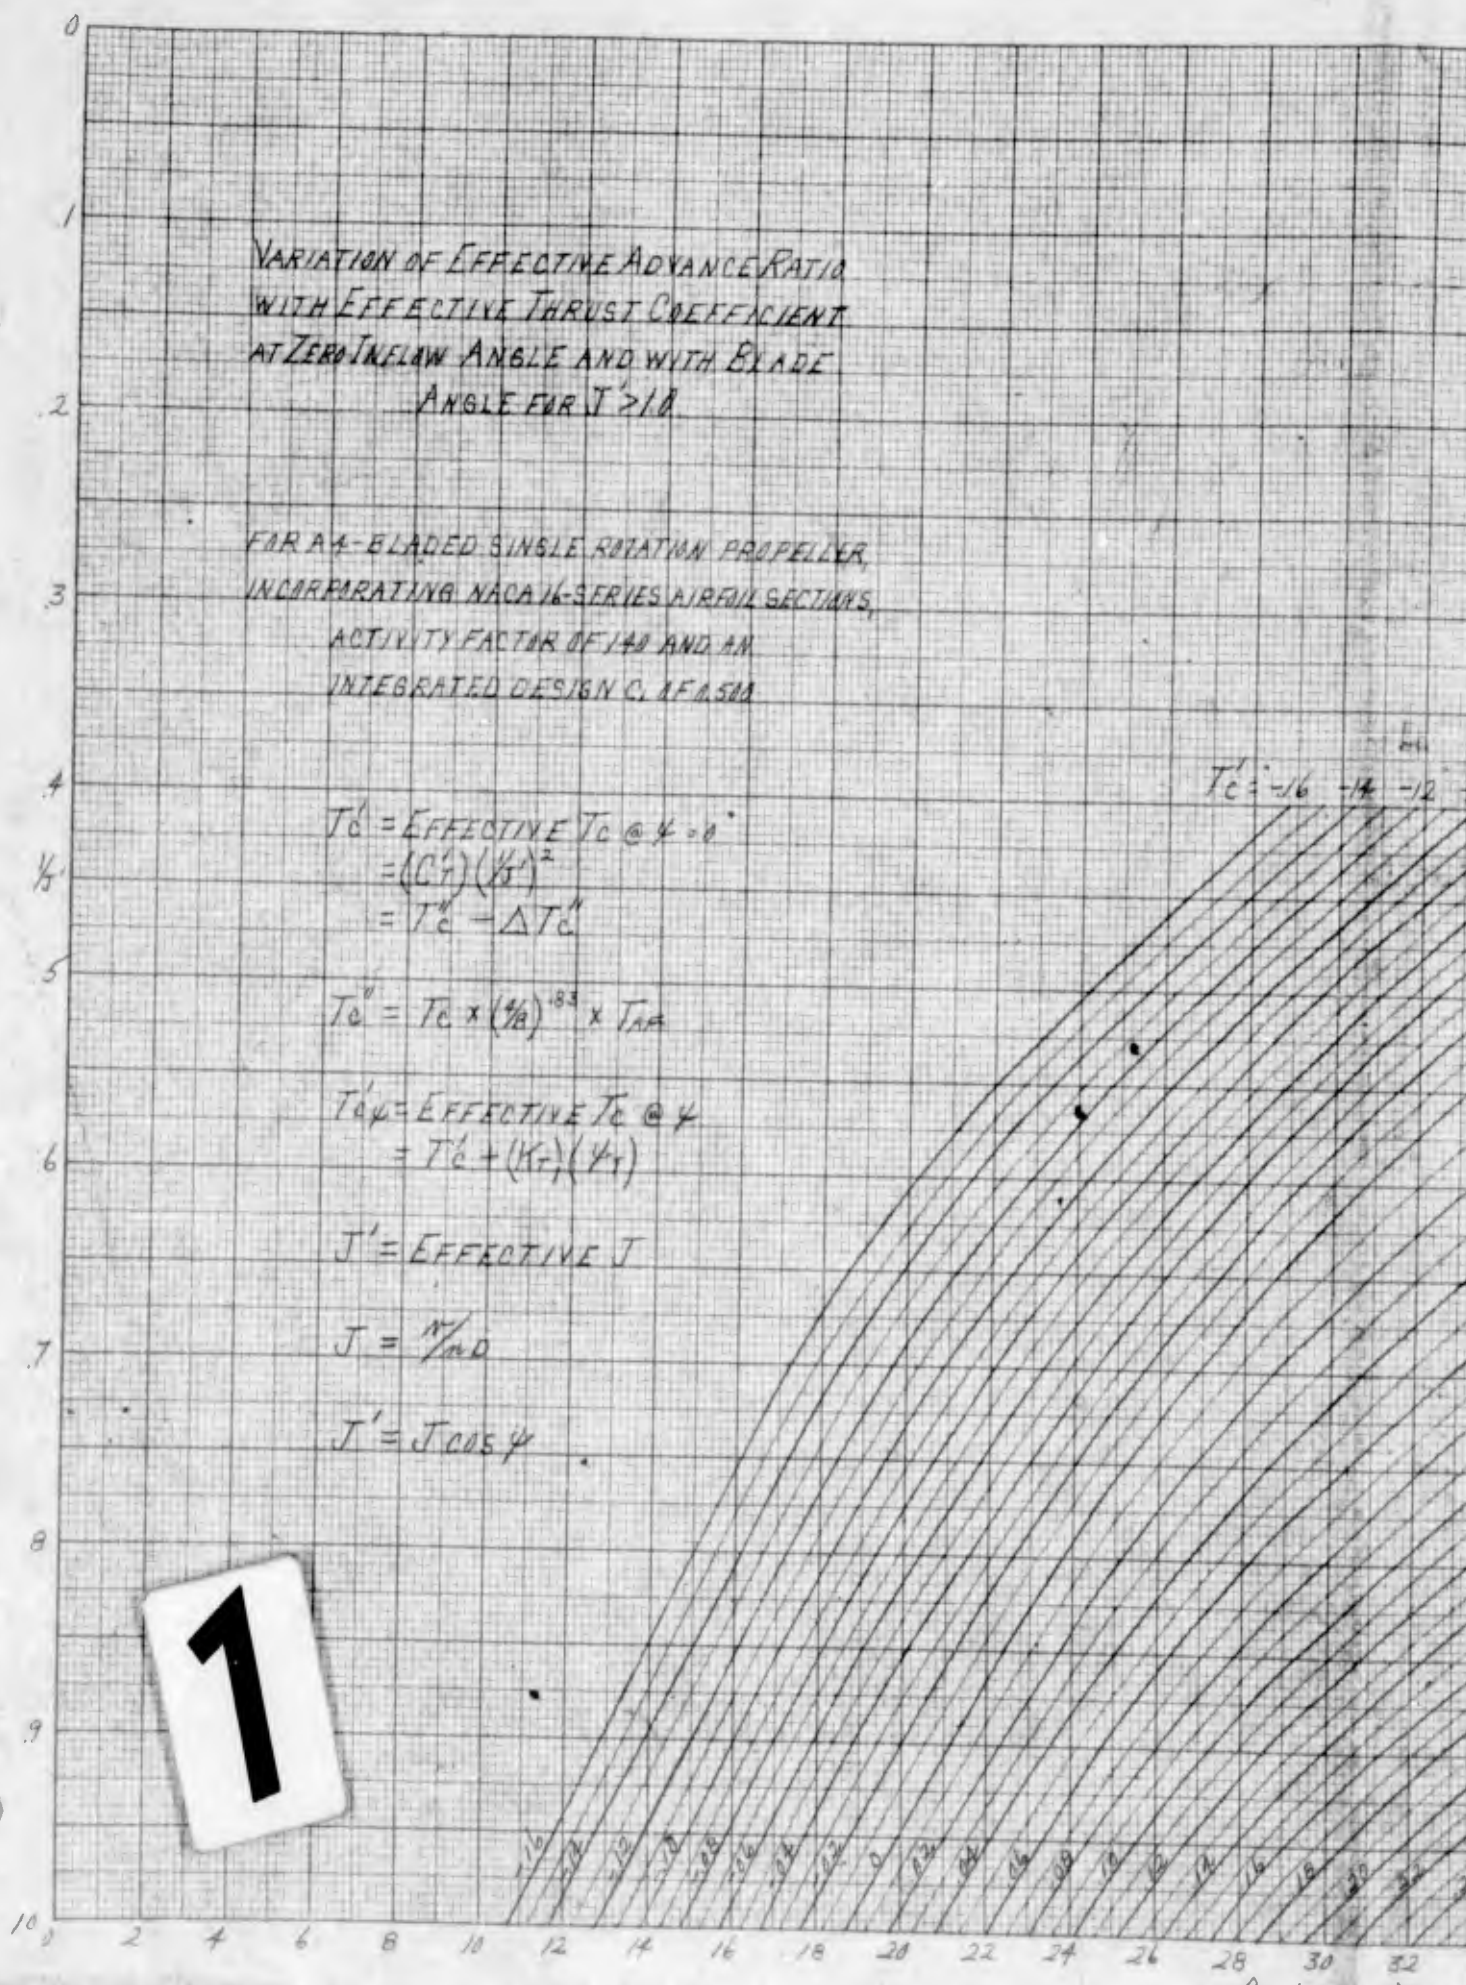 0
.1
VARIATION OF EFFECTIVE ADVANCE RATIO
WITH EFFECTIVE THRUST COEFFICIENT
AT ZERO INFLOW ANGLE AND WITH BLADE
ANGLE FOR J'>1.0
.2
FOR A 4-BLADED SINGLE ROTATION PROPELLER,
INCORPORATING NACA 16-SERIES AIRFOIL SECTIONS,
.3
ACTIVITY FACTOR OF 140 AND AN
INTEGRATED DESIGN CL OF 0.500
.4
T'c = -.16 -.14 -.12
T'c = EFFECTIVE Tc @ ψ = 0°
1/J'
= (C'T)(1/J')²
= T"c - ΔT"c
.5
T"c = Tc × (4/B)^.83 × TAF
T'cψ = EFFECTIVE Tc @ ψ
.6
= T'c + (KT)(ψT)
J' = EFFECTIVE J
.7
J = v/nD
J' = J COS ψ
.8
1
.9
-.16 -.14 -.12 -.10 -.08 -.06 -.04 -.02 0 .02 .04 .06 .08 .10 .12 .14 .16 .18 .20 .22
1.0
0 2 4 6 8 10 12 14 16 18 20 22 24 26 28 30 32